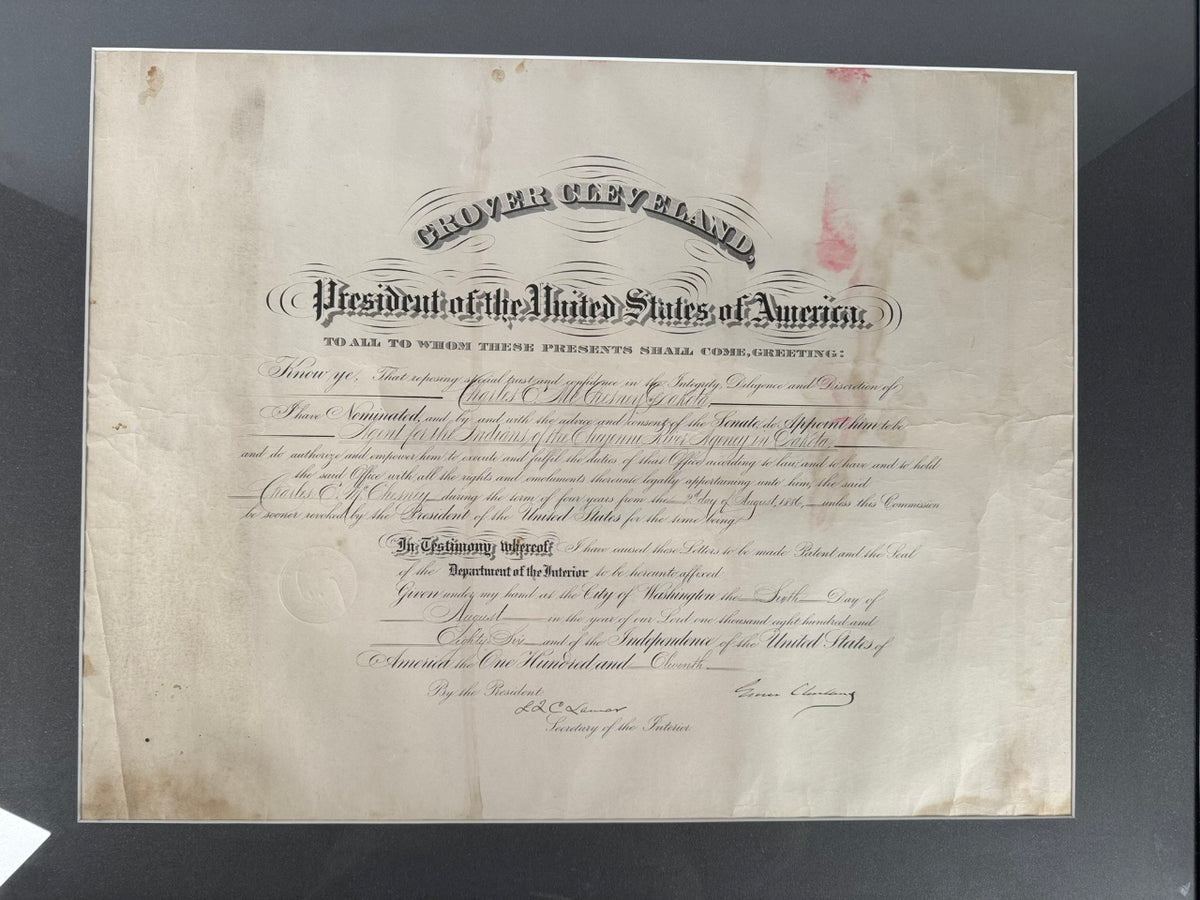 GROVER CLEVELAND,
President of the United States of America.
TO ALL TO WHOM THESE PRESENTS SHALL COME, GREETING:
Know ye, That reposing special trust and confidence in the Integrity, Diligence and Discretion of
Charles E. McChesney, Dakota
I have Nominated, and, by and with the advice and consent of the Senate, do Appoint him to be
Agent for the Indians of the Cheyenne River Agency in Dakota,
and do authorize and empower him to execute and fulfil the duties of that Office according to law; and to have and to hold
the said Office with all the rights and emoluments thereunto legally appertaining unto him, the said
Charles E. McChesney during the term of four years from the day of August, 1886, unless this Commission
be sooner revoked by the President of the United States for the time being
In Testimony whereof I have caused these Letters to be made Patent and the Seal
of the Department of the Interior to be hereunto affixed
Given under my hand at the City of Washington the Sixth Day of
August in the year of our Lord one thousand eight hundred and
Eighty Six and of the Independence of the United States of
America the One Hundred and Eleventh.
By the President: Grover Cleveland
L Q C Lamar
Secretary of the Interior